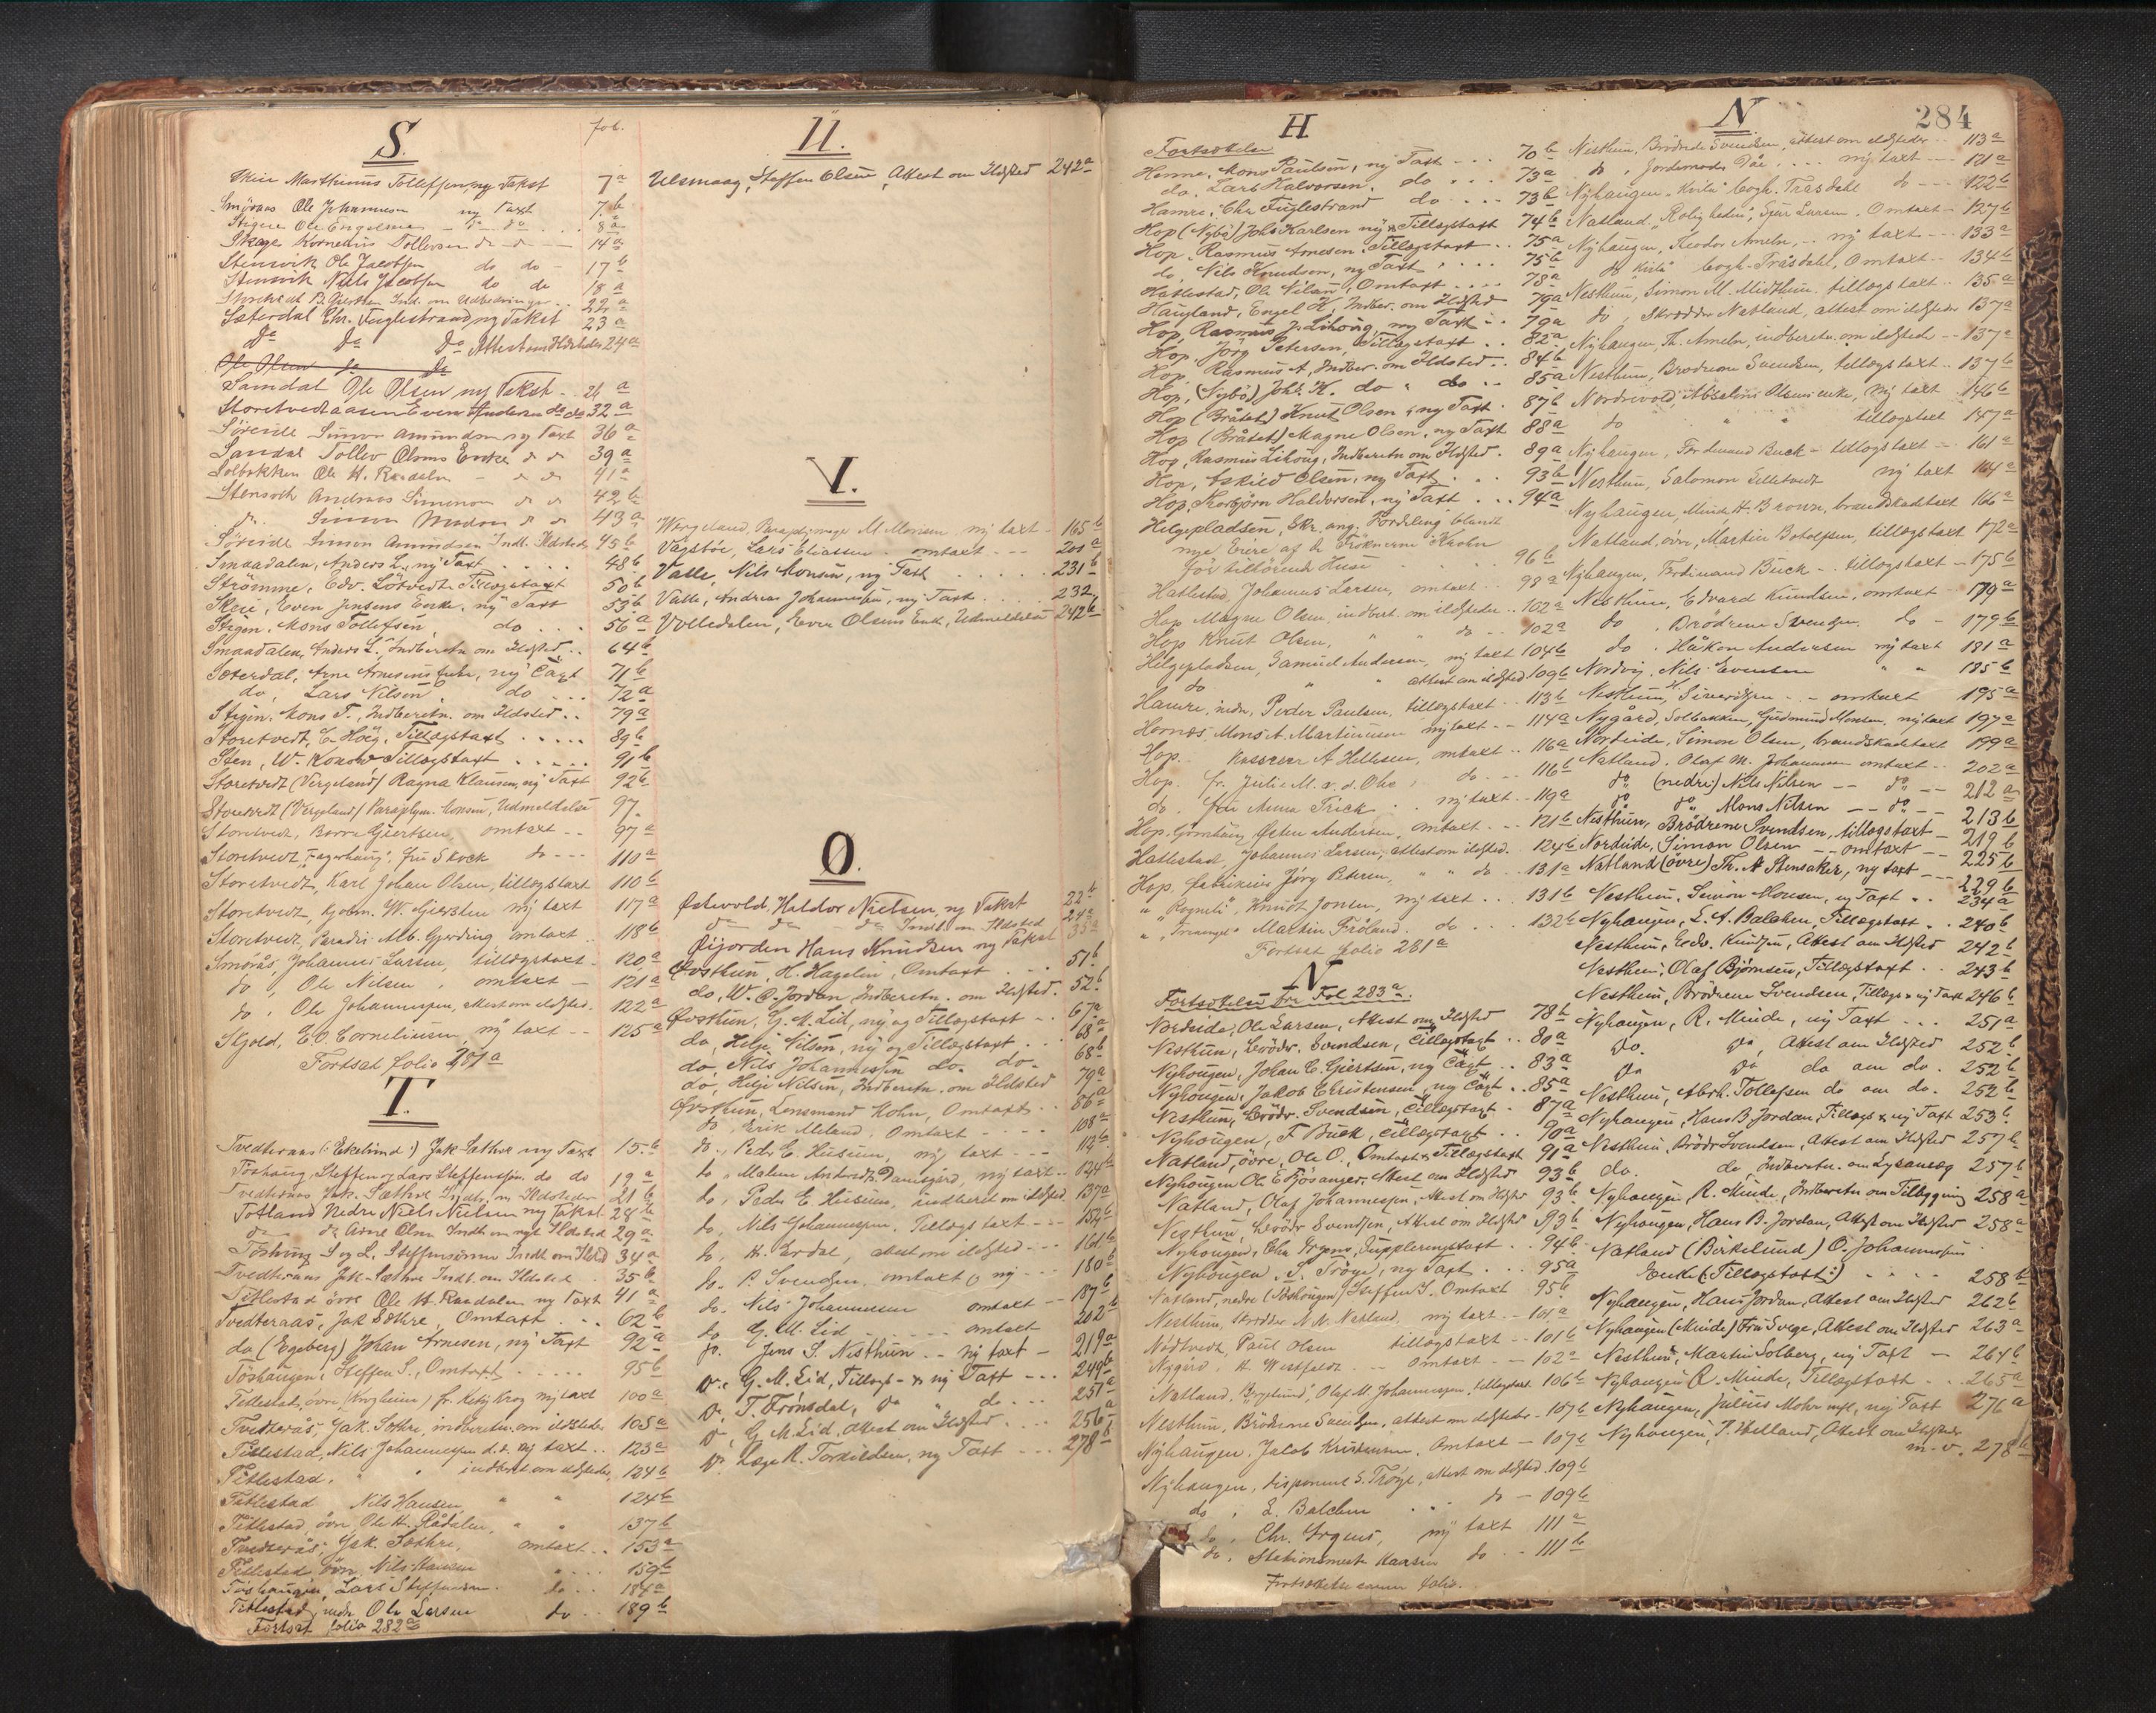 S.
fol.
Skeie Marthinus Tollefsen ny Takst 7a
Smöraas Ole Johannesen ny Taxt 7b
Stigen Ole Engelsen do do 8a
Skage Kornelius Tollevsen do do 14a
Stensvik Ole Jacobsen do do 17b
Stensvik Niels Jacobsen do do 18a
Storetvedt B. Giertsen Ind. om 22a
Sæterdal Chr. Fuglestrand ny Takst 23a
Do Do Do Attest om Ildsteder 24a
Ole Olsen do do
Samdal Ole Olsen ny Takst 26a
Storetvedtaasen Even Andersen do do 32a
Söreide Simon Amundsen ny Taxt 36a
Sandal Tollev Olsens Enke do do 39a
Solbakken Ole H. Raadalen do do 41a
Stensvik Andreas Simonsen do do 42b
do Simon Madsen do do 43a
Söreide Simon Amundsen Indb. Ildsteder 45b
Smaadalen, Anders L., ny Taxt 48b
Strömme, Edv. Lötvedt Tillægstaxt 50b
Skeie, Even Jensens Enke, ny Taxt 53b
Stigen, Mons Tollefsen, do 56a
Smaadalen, Anders L. Indberetn om Ildsted 64b
Sæterdal, Arne Arnesens Enke, ny Taxt 71b
do, Lars Nilsen do 72a
Stigen, Mons T., Indberetn. om Ildsted 79a
Storetvedt, C. Höeg, Tillægstaxt 89b
Sten, W. Konow Tillægstaxt 91b
Storetvedt (Vergeland) Ragna Klausen, ny Taxt 92b
Storetvedt (Vergeland) Paraplym. Monsen, Udmeldelse 97
Storetvedt, Berre Giertsen, omtaxt 97a
Storetvedt, "Fagerhaug", Fru Skock do 110a
Storetvedt, Karl Johan Olsen, tillægstaxt 110b
Storetvedt, Kjøbm. W. Giertsen ny taxt 117a
Storetvedt, Paradis Alb. Gjerding omtaxt 118b
Smørås, Johannes Larsen, tillægstaxt 120a
do, Ole Nilsen, omtaxt 121a
do, Ole Johannessen, attest om ildsted. 122a
Skjold, E.O. Corneliussen, ny taxt 125a
Fortsat folio 281a
T.
Tvedteraas (Ekelund) Jak Sæthre ny Taxt 15b
Töshaug, Steffen og Lars Steffensøn do do 19a
Tvedteraas Jak. Sæthre Indb. om Ildsteder 21b
Totland Nedre Niels Nielsen ny Takst 24b
do do Arne Olsen Indb om nyt Ildsted 29a
Töshaug S og L. Steffensønner Indb om Ildsted 34a
Tvedteraas Jak. Sæthre Indb. om Ildsted 35b
Titlestad övre Ole H. Raadalen ny Taxt 41a
Tvedteraas, Jak Sæthre, Omtaxt 62b
do (Egeberg) Johan Arnesen, ny Taxt 92a
Töshaugen, Steffen S., Omtaxt 95b
Titlestad, övre (Krogheim) fr. Ketty Krog ny taxt 100a
Tvedterås, Jak. Sæthre, indberetn. om ildsteder 105a
Titlestad, Nils Johannessen d.s. ny taxt 123a
Titlestad. " " indberet om ildsteder 124b
Titlestad Nils Hansen " " 124b
Titlestad, övre Ole H. Rådalen, " " 137b
Tvedterås, Jak. Sæthre, omtaxt 153a
Titlestad övre, Nils Hansen " 159b
Töshaugen, Lars Steffensen do 184a
Titlestad, nedre Ole Larsen do 189b
Fortsat folio 282a
U.
Ulsmaag, Steffen Olsen, Attest om Ildsted 242a
V.
Wergeland, Paraplymager M. Monsen, ny taxt 165b
Vågsböe, Lars Eliassen omtaxt 201a
Valle, Nils Monsen, ny Taxt 231b
Valle, Andreas Johannessen, ny Taxt 232
Volledalen, Even Olsens Enk, Udmeldelse 242b
Ø.
Østevold, Haldor Nielsen, ny Takst 22b
do do do Indb. om Ildsted 24a
Øijorden Hans Knudsen ny Takst 35a
Övsthun, H. Hagelin, Omtaxt 51b
do, W. C. Jordan Indberetn. om Ildsted. 52b
Övsthun, G. M. Lid, ny og Tillægstaxt 67a
do, Helje Nilsen, ny og Tillægstaxt 68a
do Nils Johannessen do. do. 68b
do, Helje Nilsen, Indberetn. om Ildsted 79a
Övsthun, Lensmand Hohn, Omtaxt 86a
do, Erik Aleland, Omtaxt 108a
do, Peder E. Husum, ny taxt 113b
do, Malene Antonette Danielgård, ny taxt 124b
do, Peder E. Husum, indberet om ildsted 137a
do, Nils Johannessen, Tillægstaxt 154b
do, H. Erdal, attest om ildsted 161b
do. B. Svendsen omtaxt og ny 180b
do. Nils Johannessen omtaxt 187b
do G. M. Lid omtaxt 202b
do. Jens S. Nesthun ny taxt 219a
Do. G. M. Lid, Tillægs- & ny Taxt 249b
Do, T. Frönsdal, Do do 251a
Do G M. Lid, Attest om Ildsted 256a
Do. Læge R. Torkildsen, ny Taxt 278b
284
H
Fortsættelse
Henne, Mons Paulsen, ny Taxt 70b
do. Lars Halvorsen. do 73a
Hamre, Chr Fuglestrand do 73b
Hop (Nybö) Johs Karlsen ny & Tillægstaxt 74b
Hop Rasmus Arnesen Tillægstaxt 75a
do, Nils Knudsen, ny Taxt 75b
Hatlestad, Ole Nilsen, Omtaxt 78a
Haugland, Engel K, Indber. om Ildsted 79a
Hop, Rasmus J. Lihoug, ny Taxt 79a
Hop, Jörg Petersen, Tillægstaxt 82a
Hop, Rasmus A, Indber. om Ildsted 84b
Hop, (Nybö) Johs. K. do do 85a
Hop (Bråtet) Knut Olsen, ny Taxt 87b
Hop (Bråtet) Magne Olsen, ny Taxt 88a
Hop, Rasmus Lihoug, Indberetn om Ildsted 89a
Hop, Askild Olsen, ny Taxt 93b
Hop, Thorbjörn Haldorsen, ny Taxt 94a
Helgepladsen, Skr. ang. Fordeling blandt
nye Eiere af de Frøknerne Krohn
før tilhørende Huse 96b
Hatlestad, Johannes Larsen, omtaxt 98a
Hop Magne Olsen, indberet. om ildsteder 102a
Hop Knut Olsen, " " do 102a
Helgepladsen, Samuel Andersen, ny taxt 104b
do " " attest om ildsted 109b
Hamre, nedre, Peder Paulsen, tillægstaxt 113b
Hornæs, Mons A. Martinussen ny taxt 114a
Hop. Kasserer A Hellesen, omtaxt 116a
Hop. fr. Julie M. v. d. Ohe do 116b
do. Fru Anna Frick ny taxt 119a
Hop, Grøntäng Østen Andersen, omtaxt 121b
Hatlestad, Johannes Larsen, attest om ildsted. 124b
Hop, fabrikeier Jörg Petersen, " " do 131a
" "Rognelid", Knudt Jonsen, ny taxt 131b
" "Triangel" Martin Fröland. do 132b
Fortsat folio 281a
N
Fortsættelse fra Fol 283a.
Nordeide, Ole Larsen, Attest om Ildsted 78b
Nesthun, brödr. Svendsen, Tillægstaxt 80a
Nyhougen, Johan C. Gjertsen, ny Taxt 83a
Nyhougen, Jakob Christensen, ny Taxt 85a
Nesthun, brödr. Svendsen, Tillægstaxt 87a
Nyhougen, F Buck, Tillægstaxt 90a
Natland, övre, Ole O., Omtaxt & Tillægstaxt 91a
Nyhougen Ole E Fjösanger, Attest om Ildsted 93b
Natland, Olaf Johannessen, Attest om Ildsted 93b
Nesthun, brödr Svendsen, Attest om Ildsted 93b
Nyhougen, Chr Irgens, Suppleringstaxt 94b
Nyhougen, S. Tröye, ny Taxt 95a
Natland, nedre (Nøshougen) Steffen S. Omtaxt 95b
Nesthun, skrædder N. N. Natland, ny taxt 101a
Nödtvedt, Paul Olsen tillægstaxt 101b
Nygård, H. Westfeldt omtaxt 102a
Natland, "Bryglund", Olaf M. Johannessen, tillægstaxt 106b
Nesthun, Brödrene Svendsen, attest om ildsteder 107b
Nyhaugen. Jacob Kristensen. Omtaxt 107b
Nyhaugen, disponent S. Tröye, attest om ildsted 109b
do, L. Balchen do 109b
do, Chr. Irgens, ny taxt 111a
do, Stationsmester Kaarsen do 111b
Fortsættelse samme folio.
N
Nesthun, Brödrene Svendsen, attest om ildsteder 113a
do, Jordemoder Dåe ny taxt 121a
Nyhaugen "Kvila" bogh. Træsdahl do 122b
Natland, "Rolighedn", Sjur Larsen, Omtaxt 127b
Nyhaugen, Theodor Ameln, ny taxt 133a
do "Kvila" bogh. Træsdahl, Omtaxt 134b
Nesthun, Simon M. Midthun tillægstaxt 135a
do, Skrædder Natland, attest om ildsteder 137a
Nyhaugen, Th. Ameln, indberetn. om ildsteder 137a
Nesthun, Brödrene Svendsen, tillægstaxt 137b
Nordrevold, Absalons Olsens enke, ny taxt 146b
do " " tillægstaxt 147a
Nyhaugen, Ferdinand Buck tillægstaxt 161a
Nesthun, Salomon Lilletvedt ny taxt 164a
Nyhaugen, Minde H. Brown, brandskadetaxt 166a
Natland, övre, Martin Botolfsen, tillægstaxt 172a
Nyhaugen, Ferdinand Buck tillægstaxt 175b
Nesthun, Edvard Knudsen, omtaxt 179a
do, Brödrene Svendsen do 179b
do, Håkon Andersen ny taxt 181a
Nordvig, Nils Evensen " " 185b
Nesthun, Sivertsen omtaxt 195a
Nygård, Solbakken, Gudmund Monsen, ny taxt 197a
Nordeide, Simon Olsen, brandskadetaxt 199a
Natland, Olaf M. Johannessen omtaxt 202a
do (nedre) Nils Nilsen do 212a
do do Mons Nilsen do 213b
Nesthun, Brödrene Svendsen, tillægstaxt 219b
Nordeide, Simon Olsen omtaxt 225b
Natland (övre) Th. A Stensaker, ny taxt 229b
Nesthun, Simon Monsen, ny Taxt 234a
Nyhaugen, L. A. Balchen, Tillægstaxt 240b
Nesthun, Edv. Knudsen, Attest om Ildsted 242b
Nesthun, Olaf Bjørnsen, Tillægstaxt 243b
Nesthun, Brödrene Svendsen, Tillægs & ny Taxt 246b
Nyhaugen, R. Minde, ny Taxt 251a
Do. Do, Attest om Ildsted 252b
Do Do do om do. 252b
Nesthun, Abrh. Tollefsen do om do. 252b
Nyhaugen, Hans B. Jordan, Tillægs & ny Taxt 253b
Nesthun, Brödr Svendsen, Attest om Ildsted 257b
do. do Indberetn. om Lysanlæg 257b
Nyhaugen, R. Minde, Indberetn om Tilbygning 258a
Nyhaugen, Hans B. Jordan, Attest om Ildsted 258a
Natland (Birkelund) O. Johannessens
Enke (Tillægstaxt) 258b
Nyhaugen, Hans Jordan, Attest om Ildsted 262b
Nyhaugen (Minde) Fru Svege, Attest om Ildsted 263a
Nesthun, Martin Solberg, ny Taxt 264b
Nyhaugen R. Minde, Tillægstaxt 265a
Nyhaugen, Julius Mohr mfl, ny Taxt 276a
Nyhaugen, P. Helland, Attest om Ildsteder
m. v. 278b